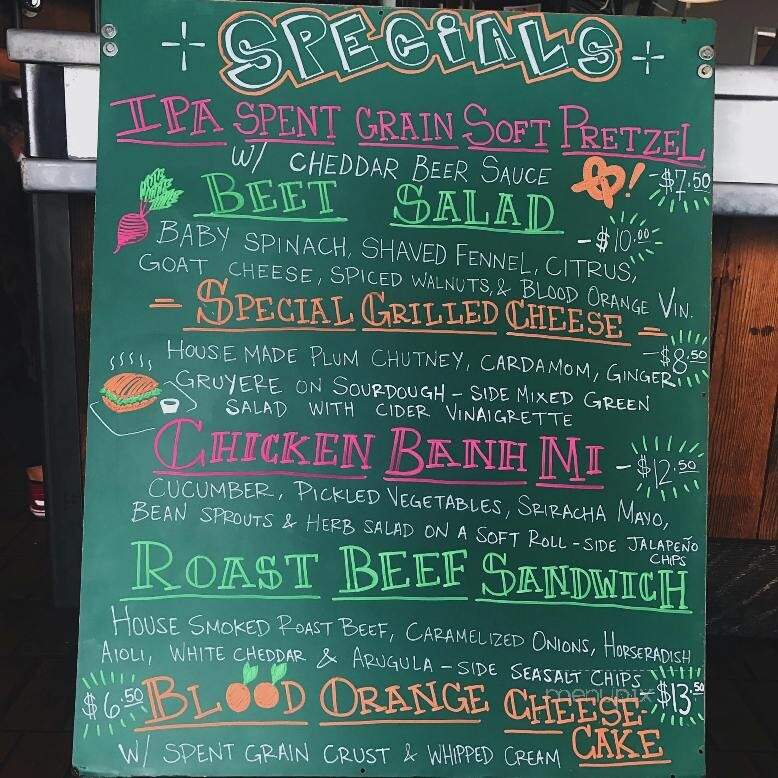 SPECIALS
IPA SPENT GRAIN SOFT PRETZEL
W/ CHEDDAR BEER SAUCE
! - $7.50
BEET SALAD
- $10.00
BABY SPINACH, SHAVED FENNEL, CITRUS,
GOAT CHEESE, SPICED WALNUTS, & BLOOD ORANGE VIN.
- SPECIAL GRILLED CHEESE -
- $8.50
HOUSE MADE PLUM CHUTNEY, CARDAMOM, GINGER,
GRUYERE ON SOURDOUGH - SIDE MIXED GREEN
SALAD WITH CIDER VINAIGRETTE
CHICKEN BANH MI - $12.50
CUCUMBER, PICKLED VEGETABLES, SRIRACHA MAYO,
BEAN SPROUTS & HERB SALAD ON A SOFT ROLL - SIDE JALAPEÑO
CHIPS
ROAST BEEF SANDWICH
HOUSE SMOKED ROAST BEEF, CARAMELIZED ONIONS, HORSERADISH
AIOLI, WHITE CHEDDAR & ARUGULA - SIDE SEASALT CHIPS
menupix
$13.50
$6.50 BLOOD ORANGE CHEESE
CAKE
W/ SPENT GRAIN CRUST & WHIPPED CREAM